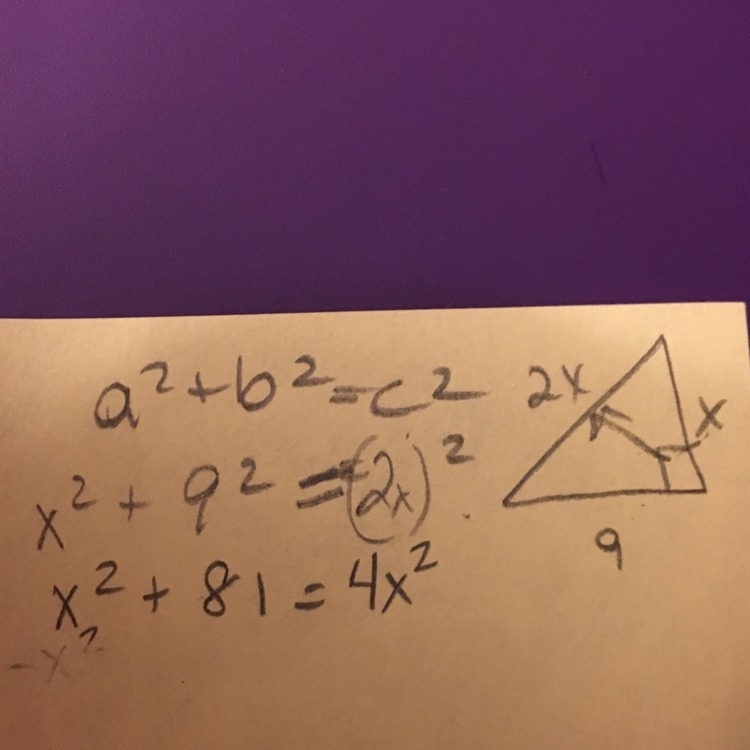 a² + b² = c²
x² + 9² = (2x)²
x² + 81 = 4x²
-x²
2x
x
9